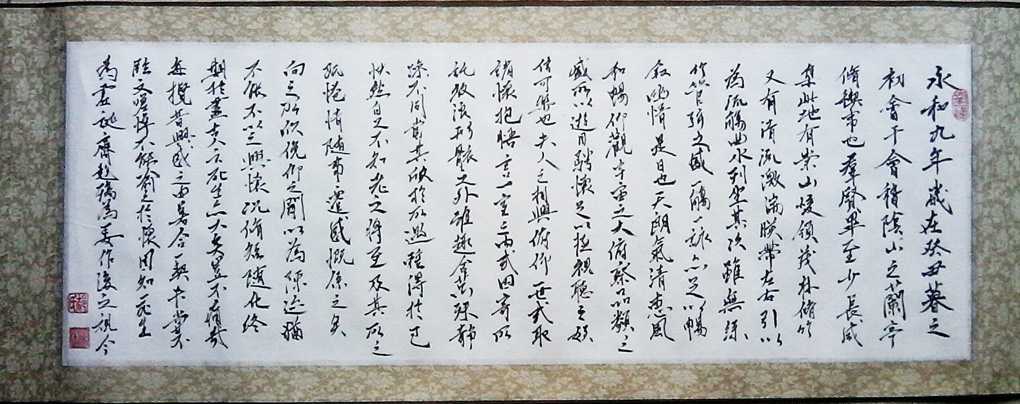 永和九年歲在癸丑暮之
初會于會稽陰山之蘭亭
脩禊事也羣賢畢至少長咸
集此地有崇山峻領茂林脩竹
又有清流激湍暎帶左右引以
為流觴曲水列坐其次雖無絲
竹管弦之盛一觴一詠亦足以暢
敘幽情是日也天朗氣清惠風
和暢仰觀宇宙之大俯察品類之
盛所以遊目騁懷足以極視聽之娛
信可樂也夫人之相與俯仰一世或取
諸懷抱悟言一室之內或因寄所
託放浪形骸之外雖趣舍萬殊靜
躁不同當其欣於所遇暫得於己
快然自足不知老之將至及其所之
既惓情隨事遷感慨係之矣
向之所欣俛仰之閒以為陳迹猶
不能不以之興懷況脩短隨化終
期於盡古人云死生亦大矣豈不痛哉
每攬昔興感之由若合一契未嘗不
臨文嗟悼不能喻之於懷固知死生
為虛誕齊彭殤為妄作後之視今